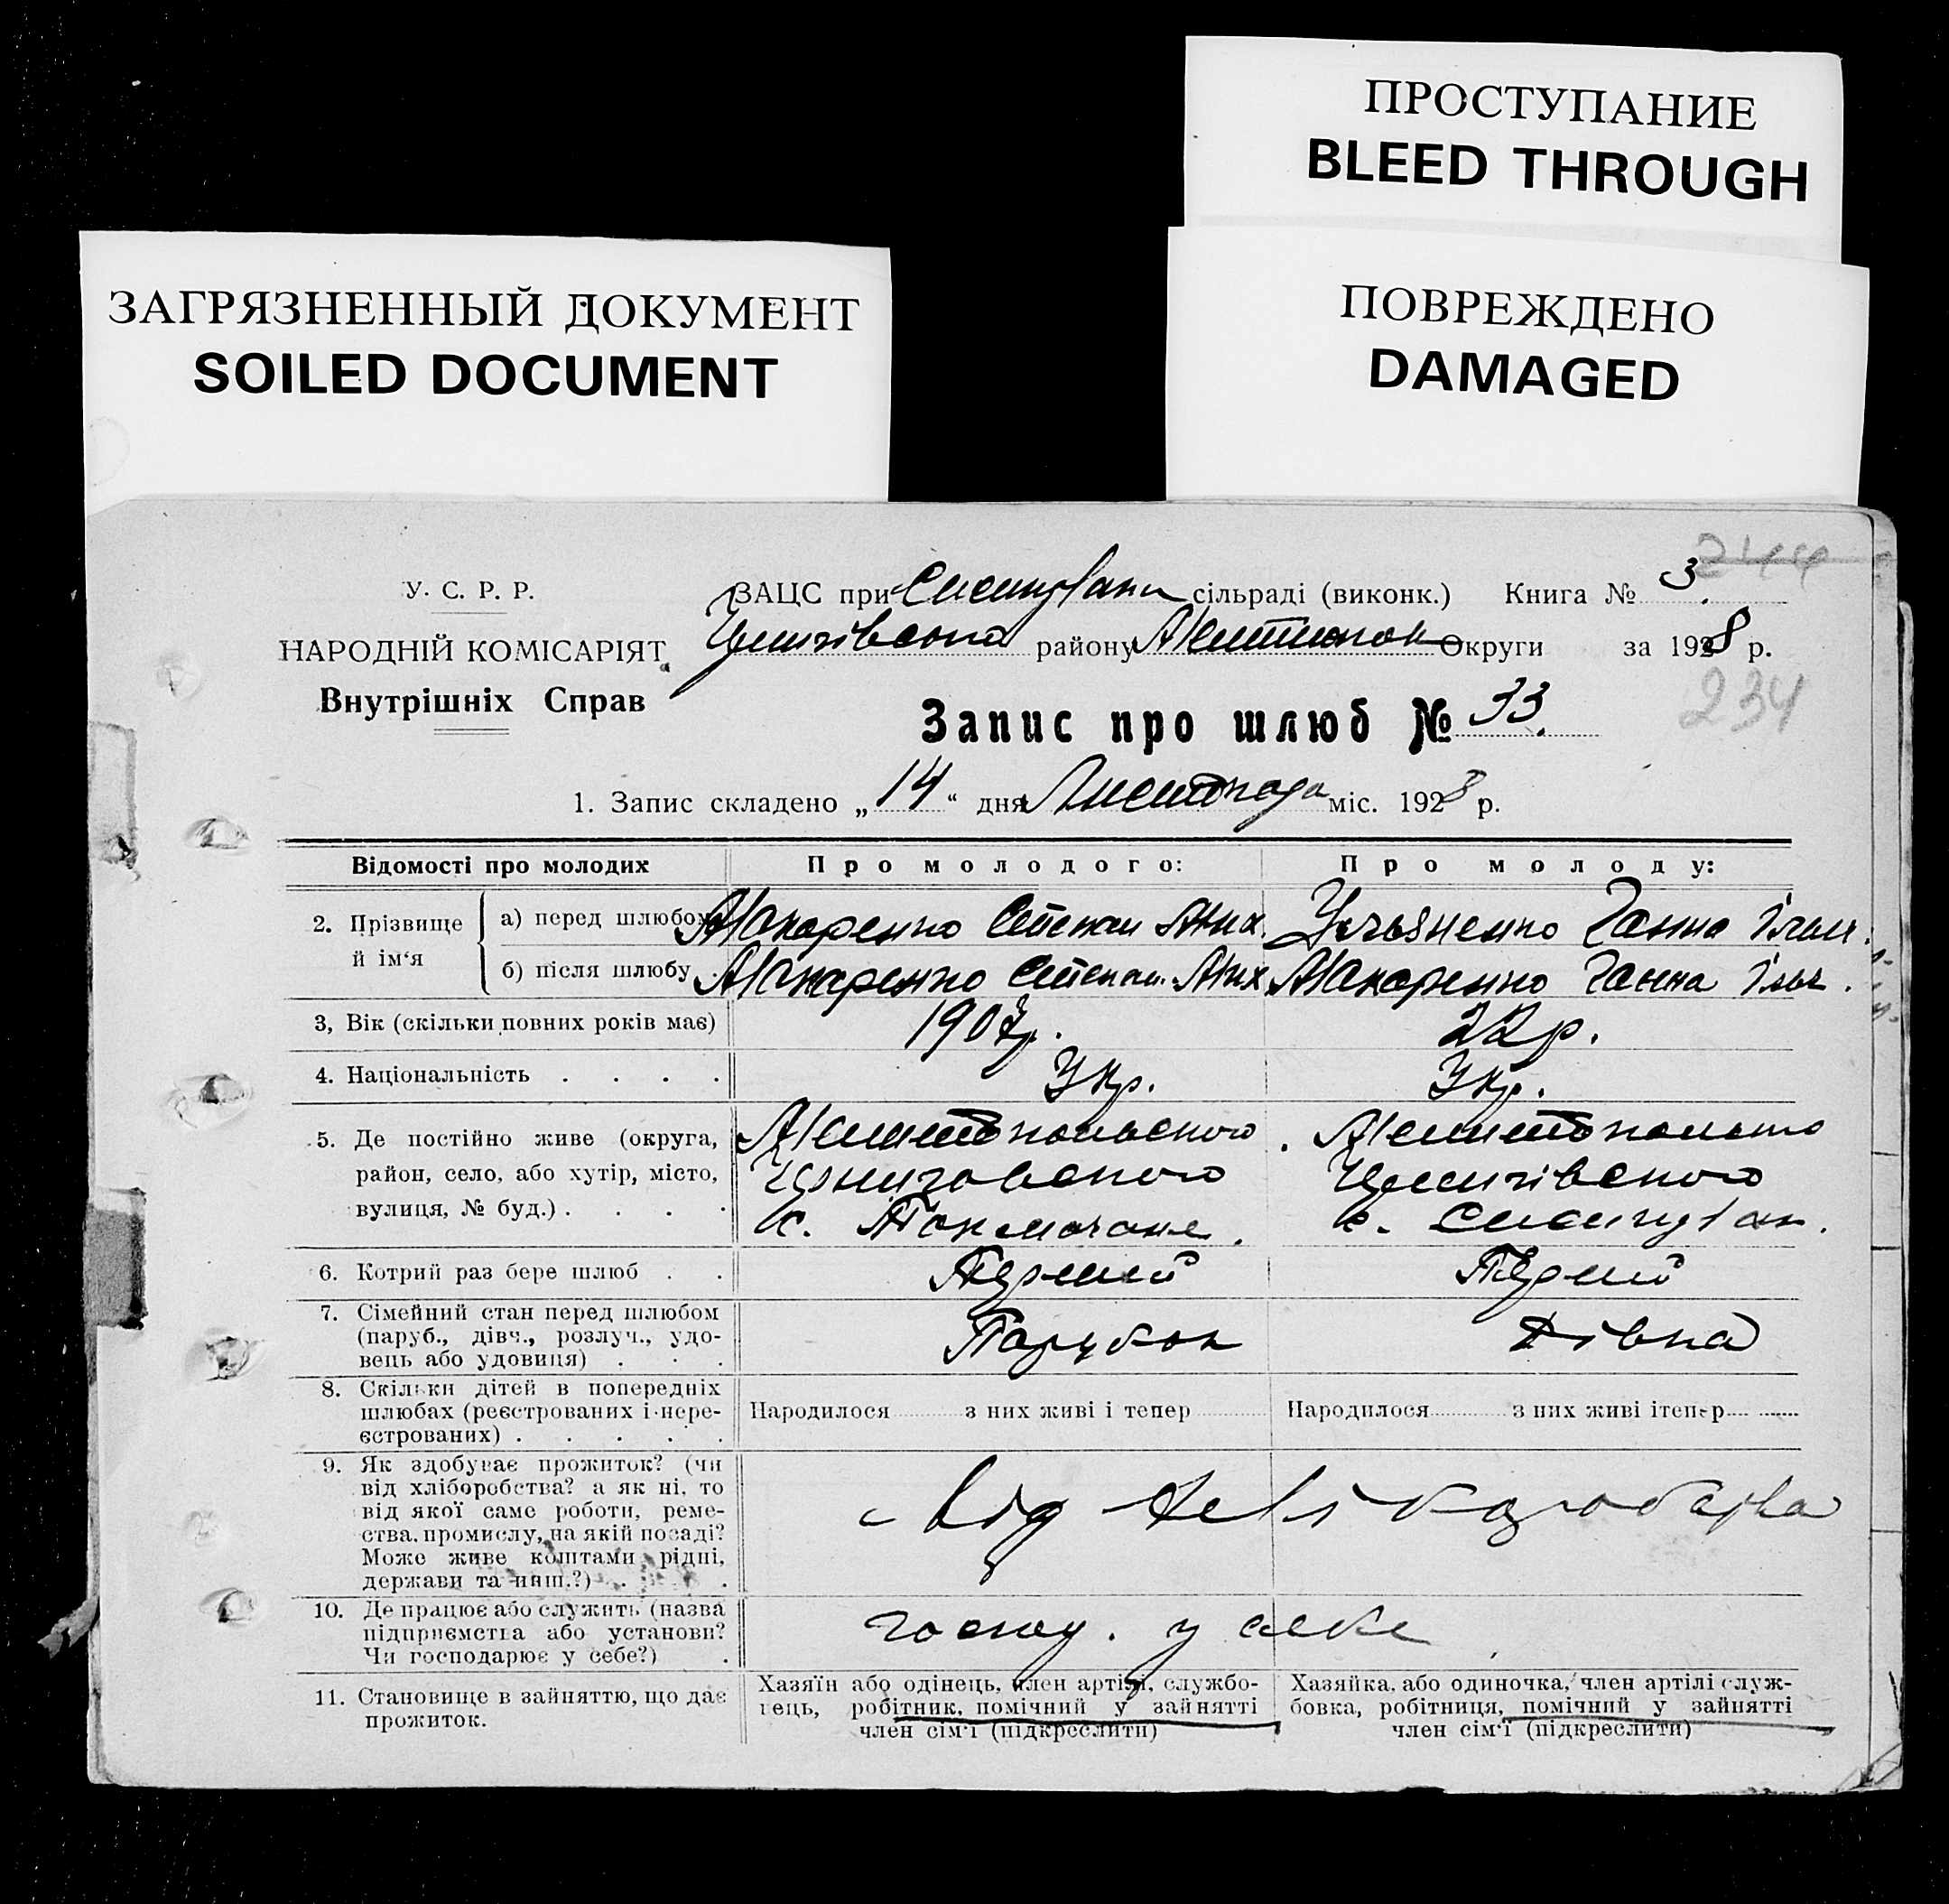 ПРОСТУПАНИЕ
BLEED THROUGH
ЗАГРЯЗНЕННЫЙ ДОКУМЕНТ
SOILED DOCUMENT
ПОВРЕЖДЕНО
DAMAGED
2144
У. С. Р. Р.
НАРОДНІЙ КОМІСАРІЯТ
Внутрішніх Справ
ЗАЦС при сільраді (виконк.) Книга № 3.
району Округи за 1928 р.
234
Запис про шлюб № 33.
1. Запис складено „14“ дня Листопада міс. 1928 р.
Відомості про молодих
Про молодого:
Про молоду:
2. Прізвище й ім‘я
а) перед шлюбом
Макаренко Степан Мих.
Ульяненко Ганна Ільн.
б) після шлюбу
Макаренко Степан. Мих
Макаренко Ганна Ільн.
3, Вік (скільки повних років має)
1907р.
22р.
4. Національність . . . .
Укр.
Укр.
5. Де постійно живе (округа,
район, село, або хутір, місто,
вулиця, № буд.) . . . .
Мелитопольского
с.
Мелитополько
с.
6. Котрий раз бере шлюб . .
Перший
Перший
7. Сімейний стан перед шлюбом
(паруб., дівч., розлуч., удо-
вець або удовиця) . . .
Парубок
Дівка
8. Скільки дітей в попередніх
шлюбах (реєстрованих і нере-
єстрованих) . . . . .
Народилося з них живі і тепер
Народилося з них живі ітепер
9. Як здобуває прожиток? (чи
від хліборобства? а як ні, то
від якої саме роботи, реме-
ства, промислу, на якій посаді?
Може живе коштами рідні,
держави та инш.?) . .
від
10. Де працює або служить (назва
підприємства або установи?
Чи господарює у себе?) .
господ. у себе
11. Становище в зайняттю, що дає
прожиток.
Хазяїн або одінець, член артілі, службо-
вець, робітник, помічний у зайнятті
член сім‘ї (підкреслити)
Хазяйка, або одиночка, член артілі служ-
бовка, робітниця, помічний у зайнятті
член сім‘ї (підкреслити)